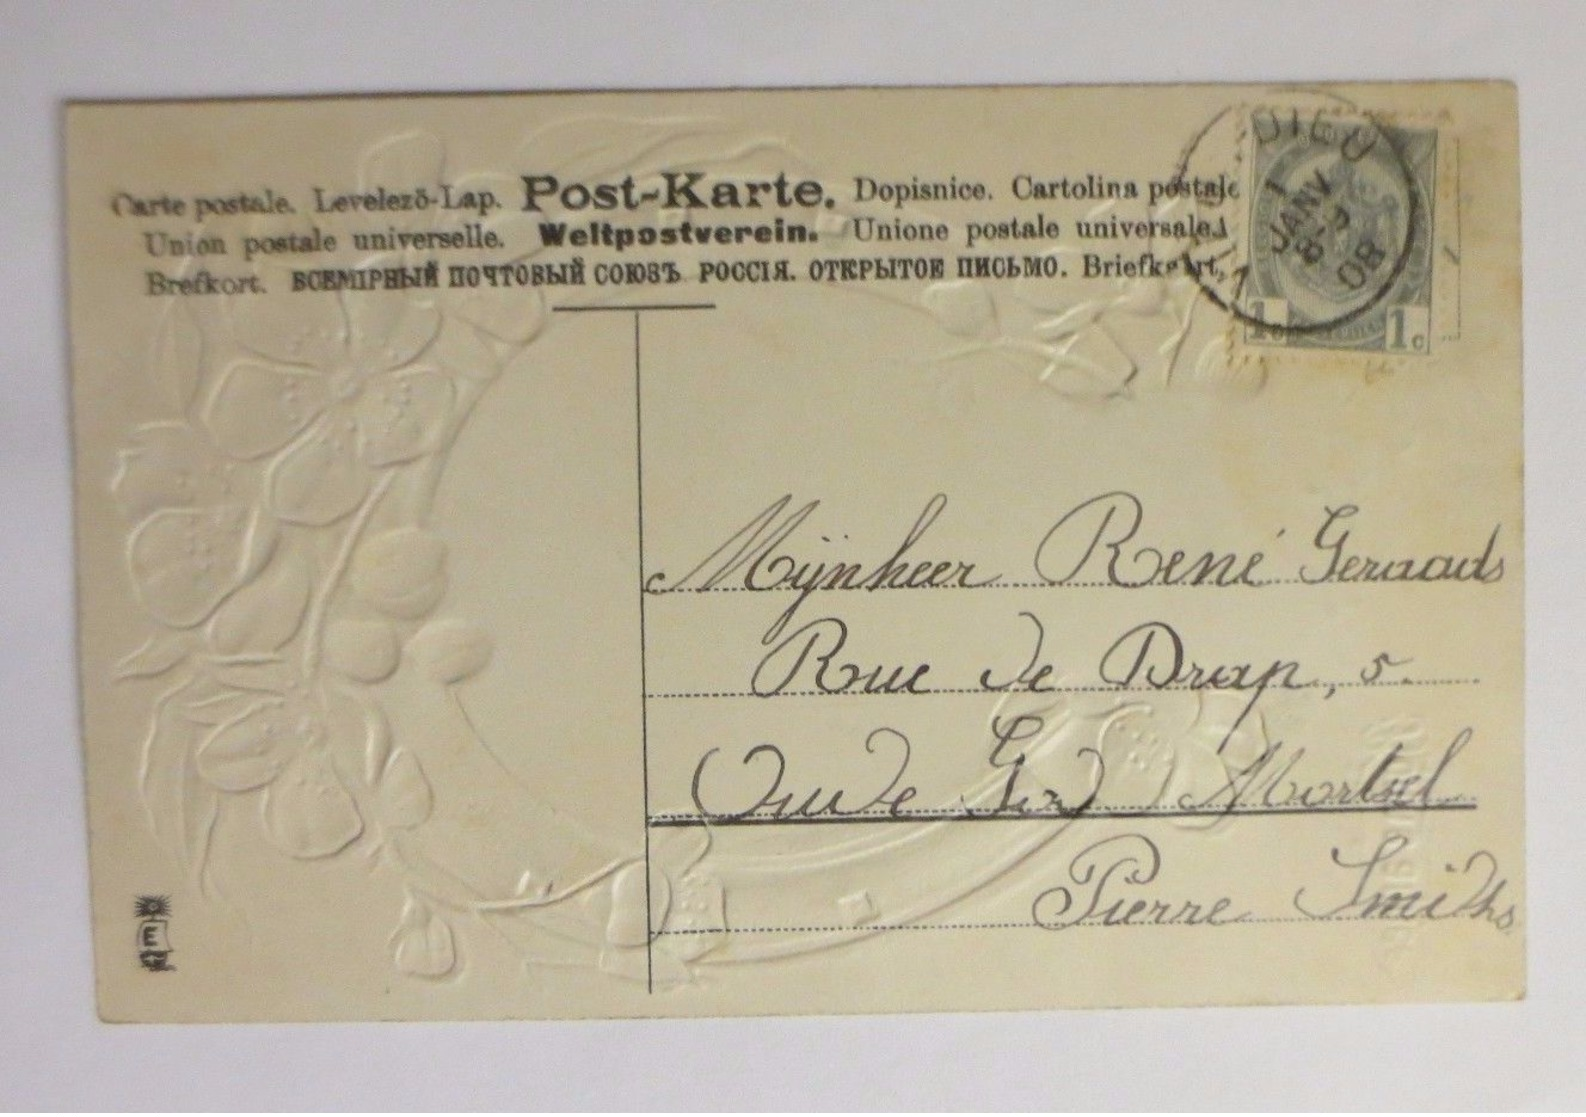 Carte postale. Levelező-Lap. Post-Karte. Dopisnice. Cartolina postale
Union postale universelle. Weltpostverein. Unione postale universale.
Brefkort. ВСЕМІРНЫЙ ПОЧТОВЫЙ СОЮЗЪ РОССІЯ. ОТКРЫТОЕ ПИСЬМО. Briefkaart.
DIEU
1
JANV
8-9
08
1c 1c
Mijnheer René Geraads
Rue de Drap, 5.
Oude God Mortsel
Pierre Smidts.
E